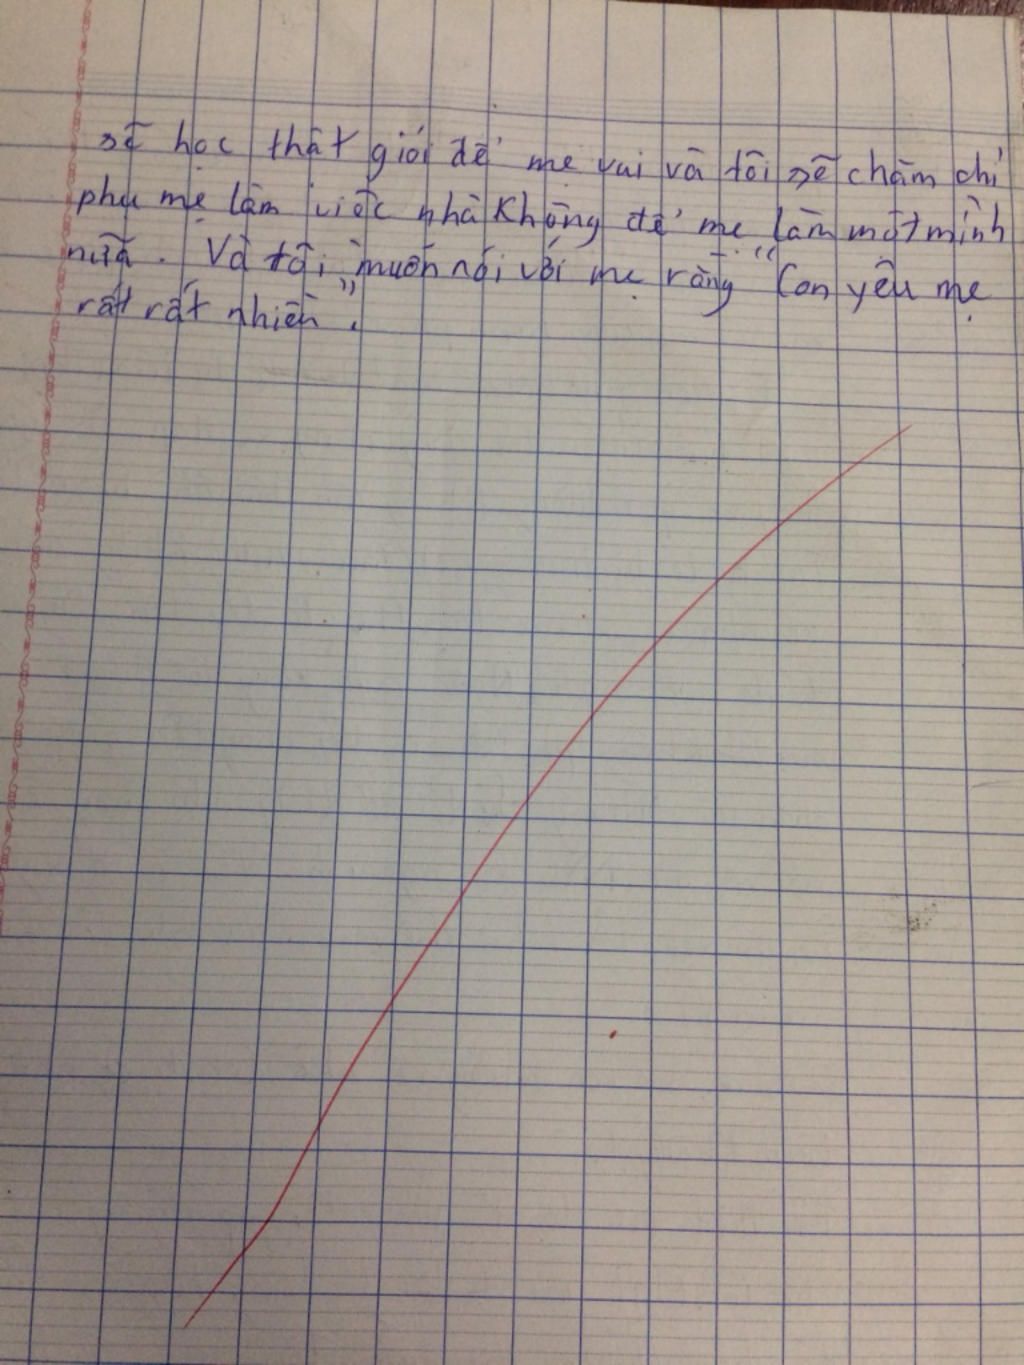 sẽ học thật giỏi để mẹ vui và tôi sẽ chăm chỉ
phụ mẹ làm việc nhà không để mẹ làm một mình
nữa. Và tôi muốn nói với mẹ rằng "Con yêu mẹ
rất rất nhiền".